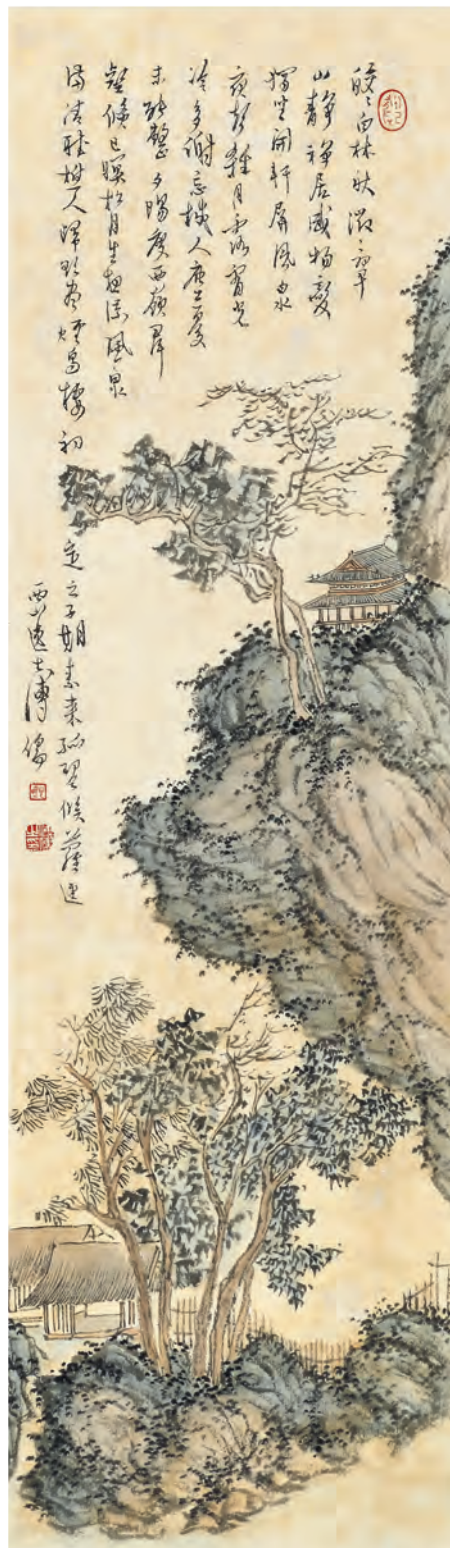 皎〻白林秋微〻翠
山靜禪居感物變
獨坐開軒屏風泉
夜聲雜月露宵光
冷多謝忘機人塵憂
未能整夕陽度西嶺群
壑倏已暝松月生夜涼風泉
滿清聽樵人歸欲盡煙鳥棲初定之子期素來孤琴候蘿逕
西山逸士溥儒